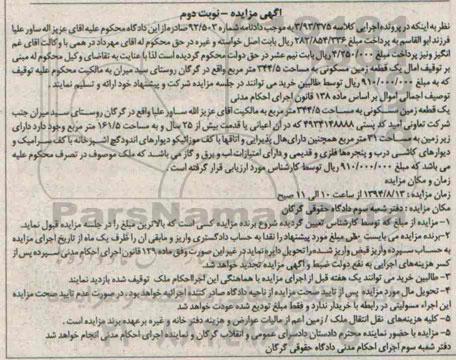 آگهی مزایده - نوبت دوم
نظر به اینکه در پرونده اجرایی کلاسه ۳/۹۳/۳۷۵ به موجب دادنامه شماره ۹۲/۵۰۲ صادره از این دادگاه محکوم علیه آقای عزیز اله ساور علیا
فرزند ابوالقاسم به پرداخت مبلغ ۲۸۳/۸۵۴/۳۳۶ ریال بابت اصل خواسته و غیره در حق محکوم له آقای مهرداد در همی با وکالت آقای غم
انگیز ونیز پرداخت مبلغ ۴/۲۵۰/۰۰۰ ریال بابت نیم عشر در حق دولت محکوم گردیده است لذا با عنایت به تقاضای وکیل محکوم له مبنی
بر توقیف اموال یک قطعه زمین مسکونی به مساحت ۳۴۴/۵ متر مربع واقع در گرگان روستای سید میران به مالکیت محکوم علیه توقیف
که به مبلغ ۹۱۰/۰۰۰/۰۰۰ ریال توسط طالبین خرید می توانند در جلسه مزایده شرکت و پیشنهاد خود ارائه و تسلیم نمایند.
توصیف اجمالی اموال بر اساس ماده ۱۳۸ قانون اجرای احکام مدنی
یک قطعه زمین مسکونی به مساحت ۳۴۴/۵ متر مربع به مالکیت آقای عزیز الله ساور علیا واقع در گرگان روستای سید میران جنب
شرکت تعاونی آمید کد پستی ۴۹۳۴۱۴۸۸۸۸ که در آن اعیانی با قدمت بیش از ۲۵ سال و به مساحت ۱۶۱/۵ متر مربع وجود دارد دارای
زیر زمین به مساحت ۳۱ متر مربع همچنین دارای هال پذیرایی و اتاقها با کف موزائیکو دیوارهای اندود گچ آشپزخانه با کف سرامیک و
دیوارهای کاشی درب و پنجره ها فلزی و قدیمی و دارای امتیازات آب و برق و گاز می باشد که ملک موصوف در تصرف محکوم علیه
می باشد که مبلغ ۹۱۰/۰۰۰/۰۰۰ ریال توسط کارشناس مورد ارزیابی قرار گرفته است.
زمان و مکان مزایده
زمان مزایده : ۱۳۹۴/۸/۱۳ از ساعت ۱۰ الی ۱۱ صبح
مکان مزایده : دفتر شعبه سوم دادگاه حقوقی گرگان
۱- مزایده از مبلغ که توسط کارشناس تعیین گردیده شروع برنده مزایده کسی است که بالاترین مبلغ را در جلسه مزایده قبول نماید.
۲- برنده مزایده می بایست ۱۰٪ مبلغ مورد پیشنهاد را نقدا به حساب دادگستری واریز و مابقی آن را ظرف یک ماه از تاریخ اجرای مزایده
به حساب سپرده واریز قبض واریز شده را تحویل دایره نماید در غیر این صورت وفق ماده ۱۲۹ قانون اجرای احکام مدنی سپرده پس از
کسر هزینه های اجرایی به نفع دولت ضبط و آگهی مزایده تجدید خواهد شد.
۳- طالبین خرید می توانند یک هفته قبل از اجرای مزایده با هماهنگی این اجرا احکام ملک توقیف شده بازدید نمایند
۴- تحویل مال مورد مزایده پس از تایید صحت مزایده از ناحیه دادگاه صادر کننده اجرائیه خواهد بود، در صورت عدم تایید صحت مزایده
این اجراء مسولیتی در رابطه با خریدار ندارد و فقط مبلغ تودیع شده عودت خواهد شد
۵- کلیه هزینه های نقل انتقال ملک / زمین اعم از مالیات عوارض و هزینه دفتر خانه و غیره بر عهده برنده مزایده است.
۵- مزایده با حضور نماینده محترم دادستان دادسرای عمومی و انقلاب گرگان و نماینده اجرای احکام مدنی انجام خواهد شد
دفتر شعبه سوم اجرای احکام مدنی دادگاه حقوقی گرگان